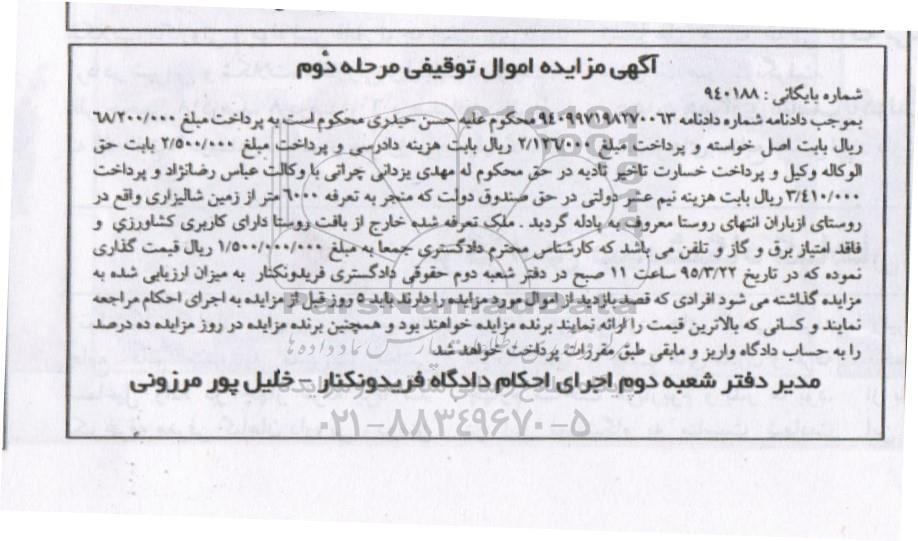 آگهی مزایده اموال توقیفی مرحله دوم
شماره بایگانی : ۹۴۰۱۸۸
بموجب دادنامه شماره دادنامه ۹۴۰۹۹۷۱۹۸۲۷۰۰۶۳ محکوم علیه حسن حیدری محکوم است به پرداخت مبلغ ۶۸/۲۰۰/۰۰۰
ریال بابت اصل خواسته و پرداخت مبلغ ۲/۱۳۶/۰۰۰ ریال بابت هزینه دادرسی و پرداخت مبلغ ۲/۵۰۰/۰۰۰ بابت حق
الوکاله وکیل و پرداخت خسارت تاخیر تادیه در حق محکوم له مهدی یزدانی چراتی با وکالت عباس رضانژاد و پرداخت
۳/۴۱۰/۰۰۰ ریال بابت هزینه نیم عشر دولتی در حق صندوق دولت که منجر به تعرفه ۶۰۰ متر از زمین شالیزاری واقع در
روستای ازباران انتهای روستا معروف به پادله گردید . ملک تعرفه شده خارج از بافت روستا دارای کاربری کشاورزی و
فاقد امتیاز برق و گاز و تلفن می باشد که کارشناس محترم دادگستری جمعا به مبلغ ۱/۵۰۰/۰۰۰/۰۰۰ ریال قیمت گذاری
نموده که در تاریخ ۹۵/۳/۲۲ ساعت ۱۱ صبح در دفتر شعبه دوم حقوقی دادگستری فریدونکنار به میزان ارزیابی شده به
مزایده گذاشته می شود افرادی که قصد بازدید از اموال مورد مزایده را دارند باید ۵ روز قبل از مزایده به اجرای احکام مراجعه
نمایند و کسانی که بالاترین قیمت را ارائه نمایند برنده مزایده خواهند بود و همچنین برنده مزایده در روز مزایده ده درصد
را به حساب دادگاه واریز و مابقی طبق مقررات پرداخت خواهد شد
مدیر دفتر شعبه دوم اجرای احکام دادگاه فریدونکنار – خلیل پور مرزونی
ParsNamadData
۰۲۱-۸۸۳۴۹۶۷۰-۵